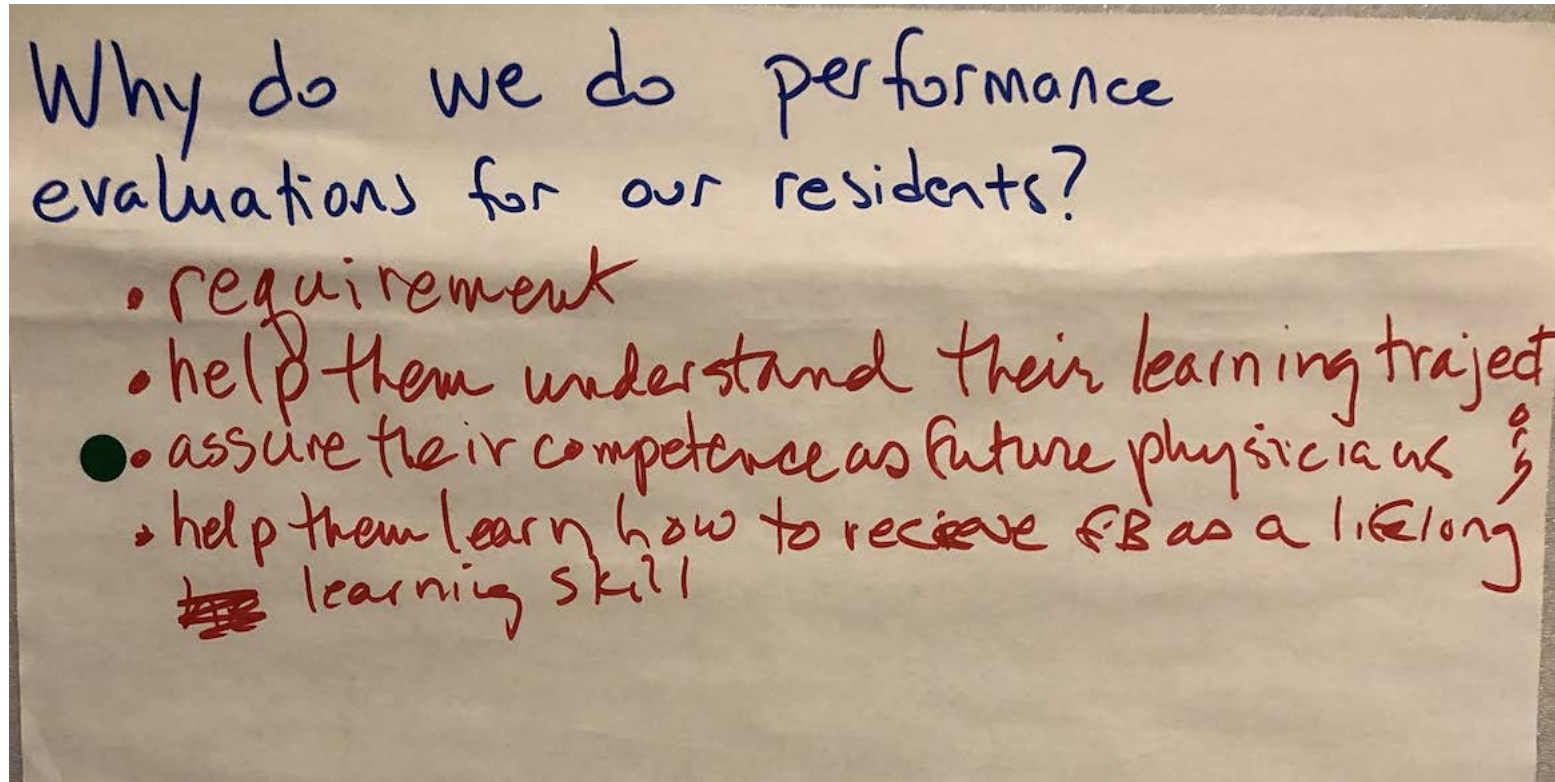 Why do we do performance
evaluations for our residents?
• requirement
• help them understand their learning trajectory
• assure their competence as future physicians
• help them learn how to recieve FB as a lifelong
learning skill